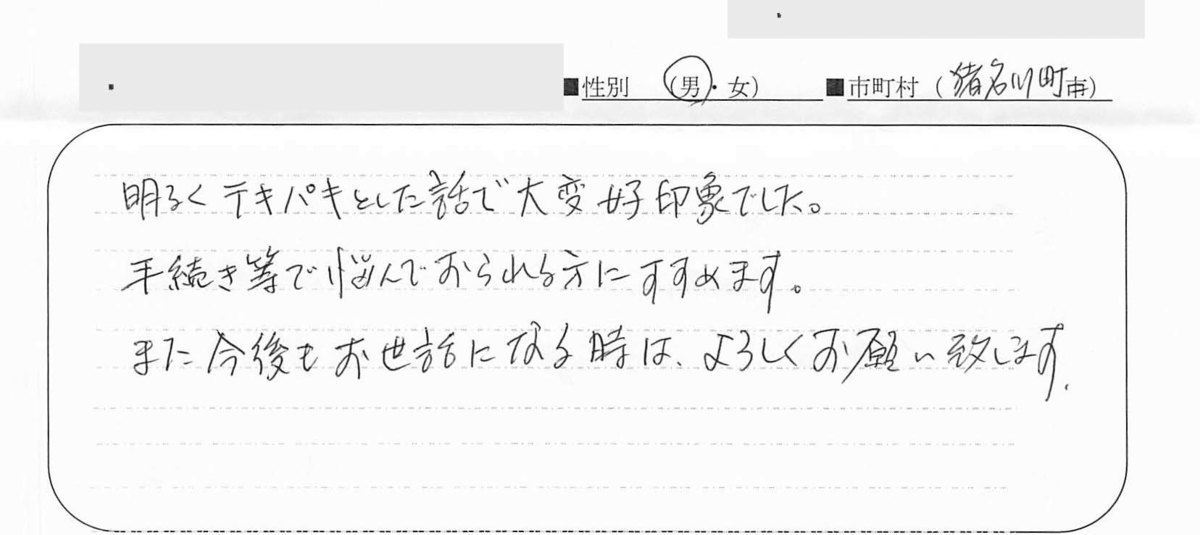 ■性別 (男・女) ■市町村(猪名川町市)
明るくテキパキとした話で大変好印象でした。
手続き等で悩んでおられる方にすすめます。
また今後もお世話になる時は、よろしくお願い致します.